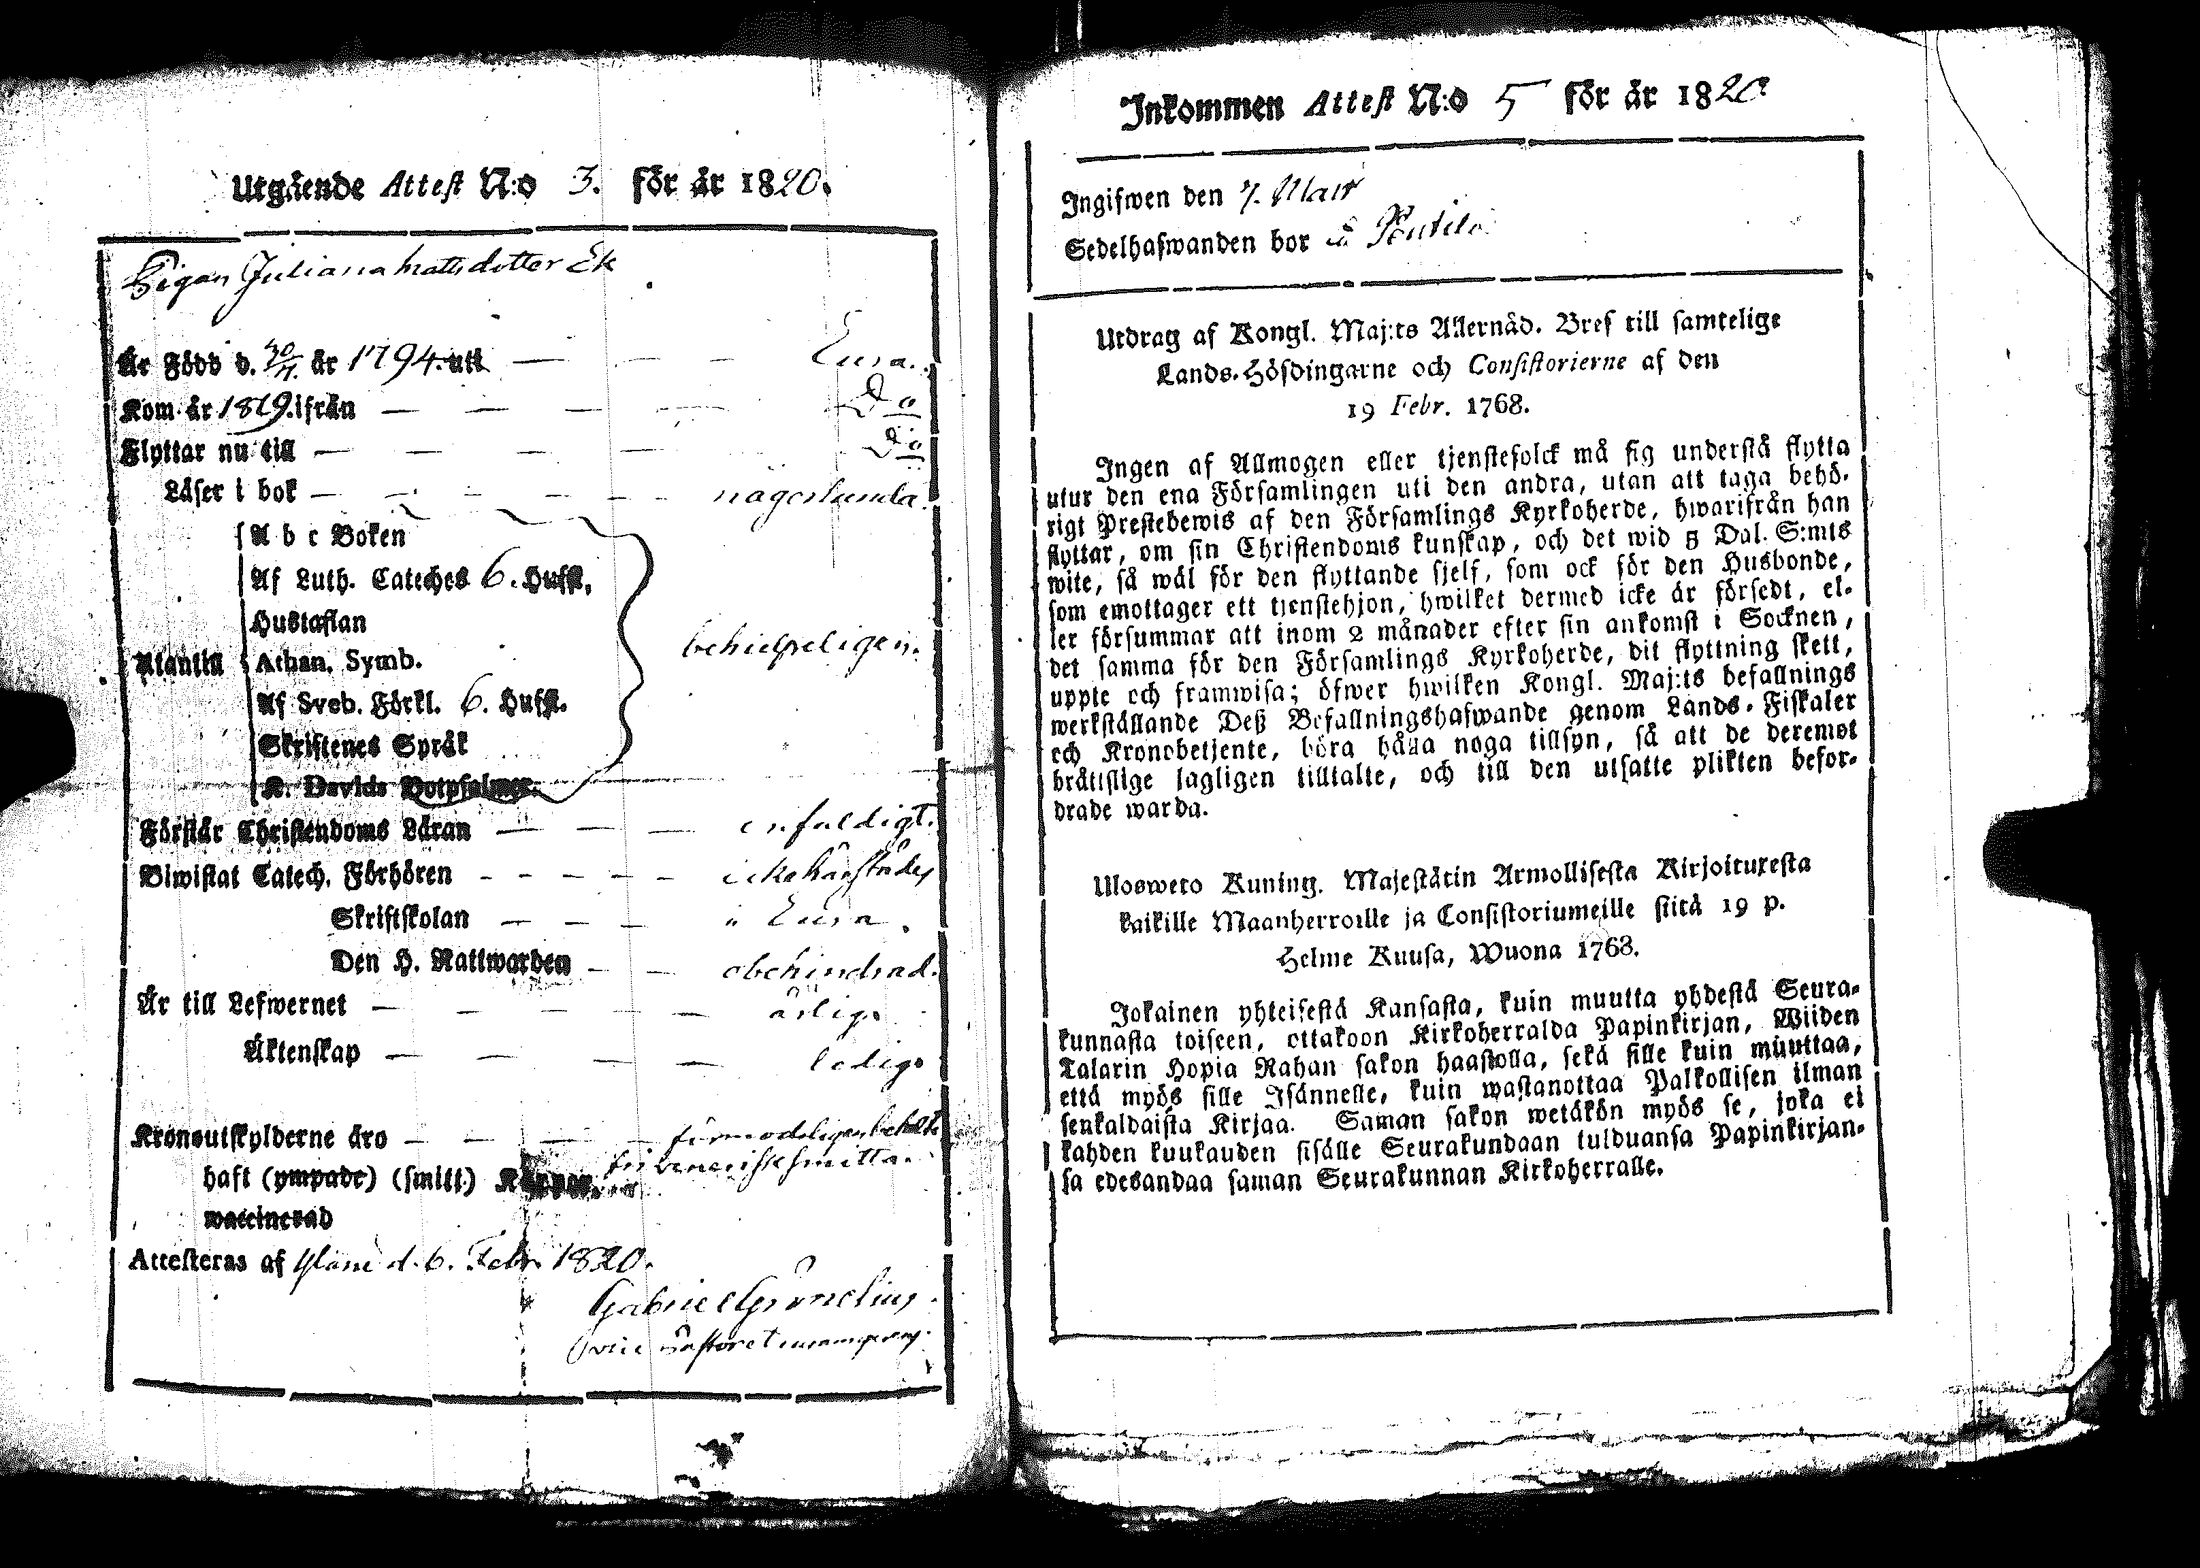 Utgående Attest N:o 3. för år 1820.
Pigan Juliana Mattsdotter Ek
Är Född d. 20/11. år 1794. uti — — — Eura.
Kom år 1819. ifrån — — — — Do
Flyttar nu till — — — — — Do
Läser i bok — — — — — någorlunda.
A b c Boken
Af Luth. Cateches 6. Hufst.
Hustaflan
Utantill Athan. Symb. behielpeligen.
Af Sveb. Förkl. 6. Hufst.
Skriftenes Språk
K. Davids Botpsalmer.
Förstår Christendoms Läran — — — enfaldigt.
Biwistat Catech. Förhören - - - - - icke härstädes
Skriftskolan — — — i Eura.
Den H. Nattwarden — — obehindrad.
Är till Lefwernet — — — — — ärlig.
Äktenskap — — — — ledig.
Kronoutskylderne äro — — — — förmodeligen betalte
haft (ympade) (smitt.) Koppor, fri venerisk smitta.
waccinerad
Attesteras af Yläne d. 6. Febr. 1820.
Gabriel Grönelius.
vice Pastor
Inkommen Attest N:o 5 för år 1820
Ingifwen den 7. Mars
Sedelhafwanden bor å
Utdrag af Kongl. Maj:ts Allernåd. Bref till samtelige
Lands-Höfdingarne och Consistorierne af den
19 Febr. 1768.
Ingen af Allmogen eller tjenstefolck må sig understå flytta
utur den ena Församlingen uti den andra, utan att taga behö-
rigt Prestebewis af den Församlings Kyrkoherde, hwarifrån han
flyttar, om sin Christendoms kunskap, och det wid 5 Dal. S:mts
wite, så wäl för den flyttande sjelf, som ock för den Husbonde,
som emottager ett tjenstehjon, hwilket dermed icke är försedt, el-
ler försummar att inom 2 månader efter sin ankomst i Socknen,
det samma för den Församlings Kyrkoherde, dit flyttning skett,
uppte och framwisa; öfwer hwilken Kongl. Maj:ts befallnings
werkställande Deß Befallningshafwande genom Lands-Fiskaler
och Kronobetjente, böra hålla noga tillsyn, så att de deremot
bråttslige lagligen tilltalte, och till den utsatte plikten befor-
drade warda.
Ulosweto Kuning. Majestätin Armollisesta Kirjoituxesta
kaikille Maanherroille ja Consistoriumeille siitä 19 p.
Helme Kuusa, Wuona 1768.
Jokainen yhteisestä Kansasta, kuin muutta yhdestä Seura-
kunnasta toiseen, ottakoon Kirkoherralda Papinkirjan, Wiiden
Talarin Hopia Rahan sakon haastolla, sekä sille kuin muuttaa,
että myös sille Isännelle, kuin wastanottaa Palkollisen ilman
senkaldaista Kirjaa. Saman sakon wetäkön myös se, joka ei
kahden kuukauden sisälle Seurakundaan tulduansa Papinkirjan-
sa edesandaa saman Seurakunnan Kirkoherralle.